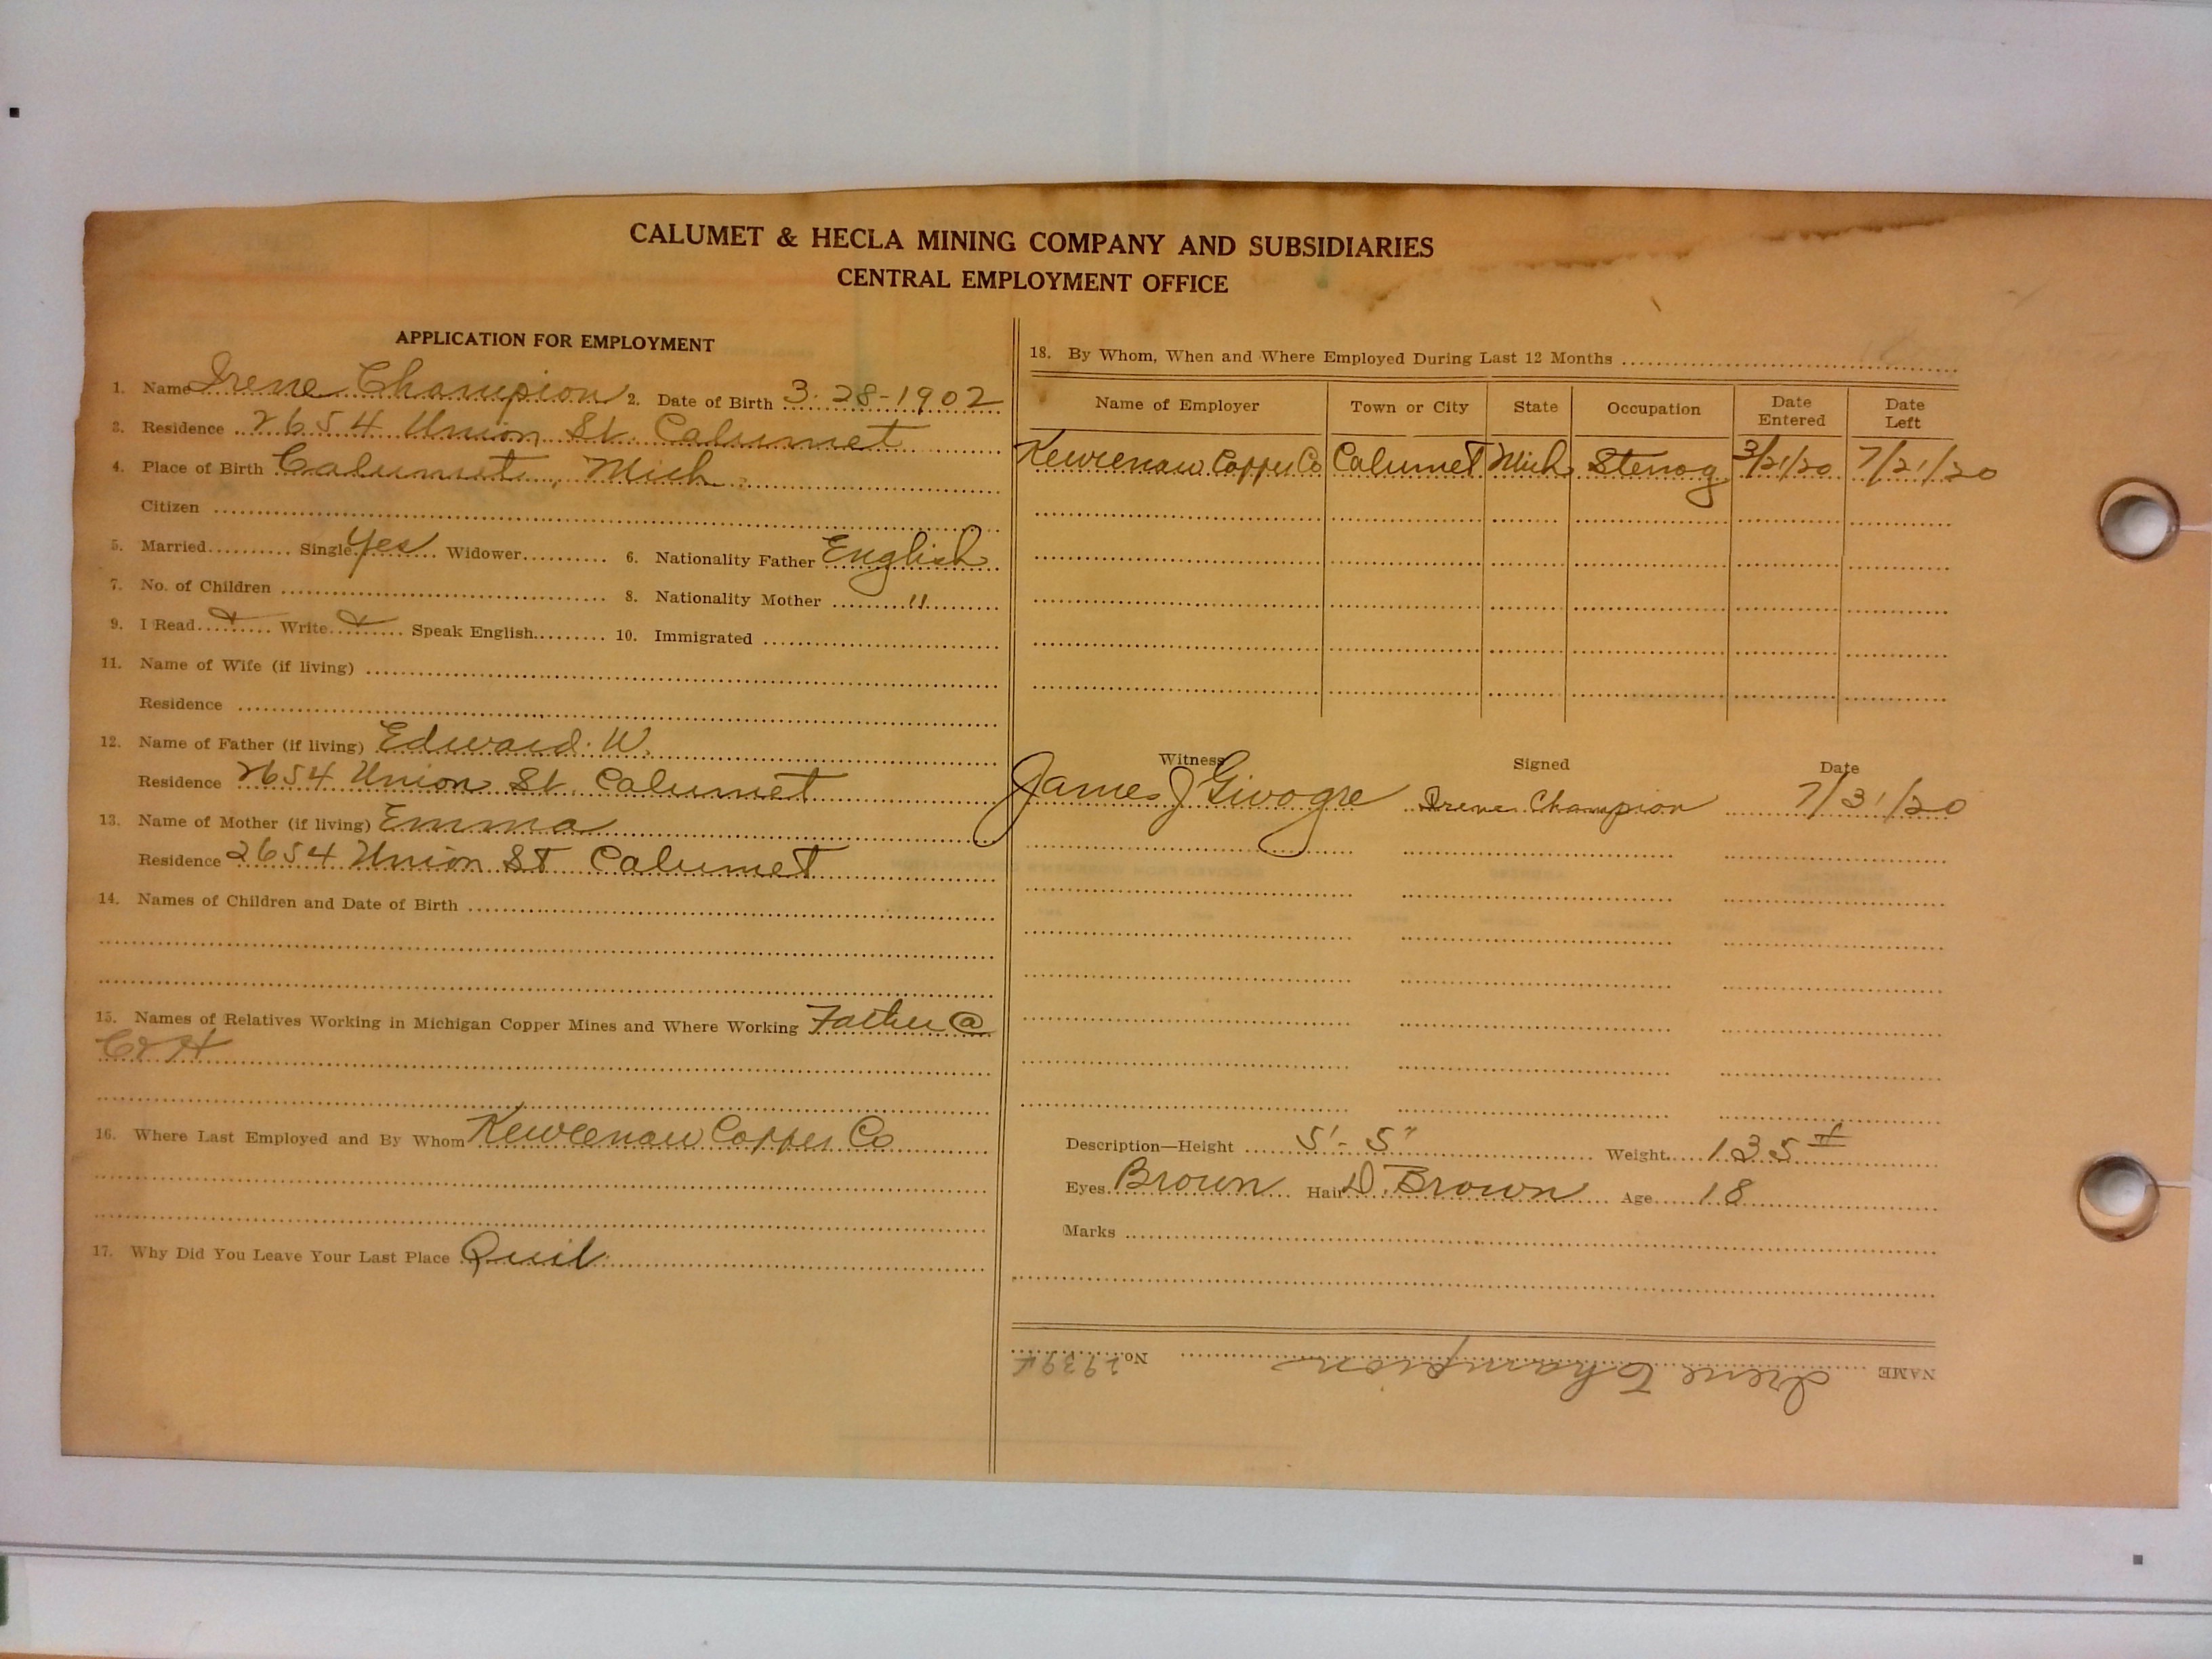 CALUMET & HECLA MINING COMPANY AND SUBSIDIARIES
CENTRAL EMPLOYMENT OFFICE
APPLICATION FOR EMPLOYMENT
1. Name Irene Champion 2. Date of Birth 3-28-1902
3. Residence 2654 Union St. Calumet
4. Place of Birth Calumet, Mich.
Citizen
5. Married Single Yes Widower 6. Nationality Father English
7. No. of Children 8. Nationality Mother "
9. I Read Write Speak English 10. Immigrated
11. Name of Wife (if living)
Residence
12. Name of Father (if living) Edward W.
Residence 2654 Union St. Calumet
13. Name of Mother (if living) Emma
Residence 2654 Union St Calumet
14. Names of Children and Date of Birth
15. Names of Relatives Working in Michigan Copper Mines and Where Working Father @
C & H
16. Where Last Employed and By Whom Keweenaw Copper Co
17. Why Did You Leave Your Last Place Quit
18. By Whom, When and Where Employed During Last 12 Months
Name of Employer Town or City State Occupation Date Entered Date Left
Keweenaw Copper Co Calumet Mich Stenog 3/21/20 7/21/20
Witness Signed Date
James J Irene Champion 7/31/20
Description—Height 5'-5" Weight 135 #
Eyes Brown Hair D. Brown Age 18
Marks
NAME Irene Champion No.